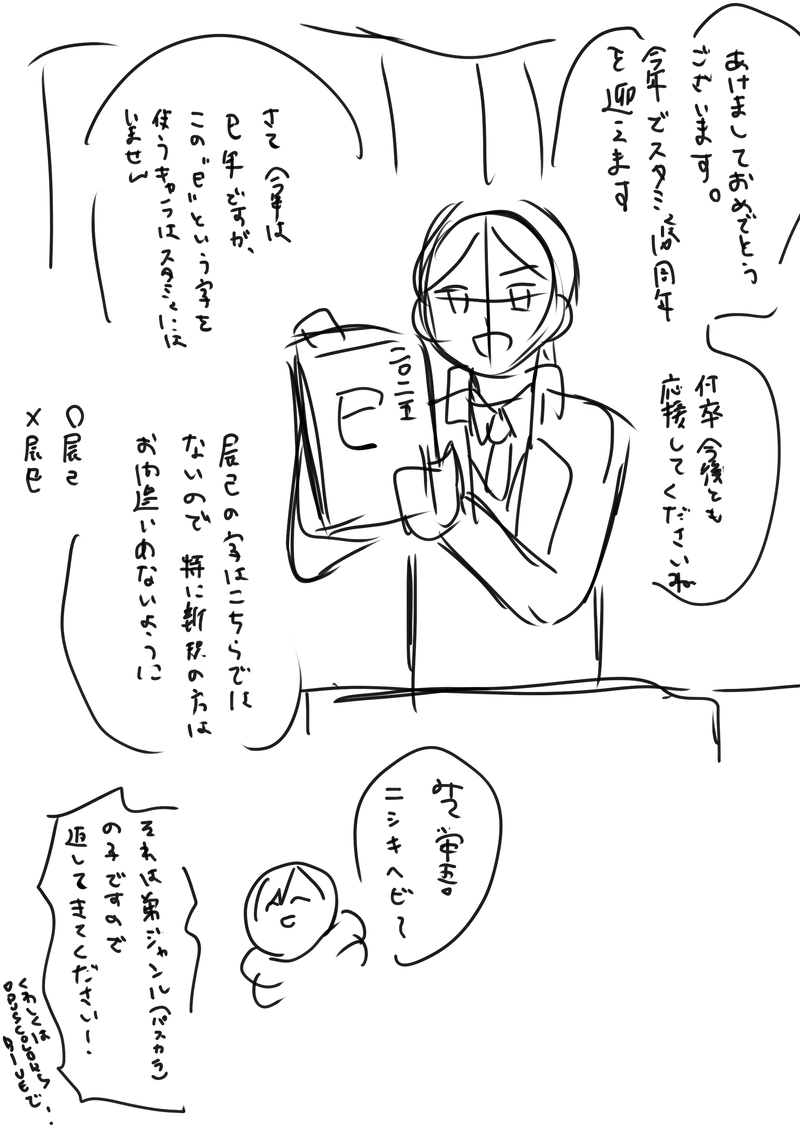 あけましておめでとう
ございます。
今年でスタミュは10周年
を迎えます
何卒今後とも
応援してくださいね
さて今年は
巳年ですが、
この"巳"という字を
使うキャラはスタミュには
いません
二〇二五
巳
辰己の字はこちらでは
ないので特に新規の方は
お間違いのないように
〇辰己
×辰巳
みて
ニシキヘビ〜
それは弟ジャンル(パスカラ)
の子ですので
返してきてください!
くわしくは
で!